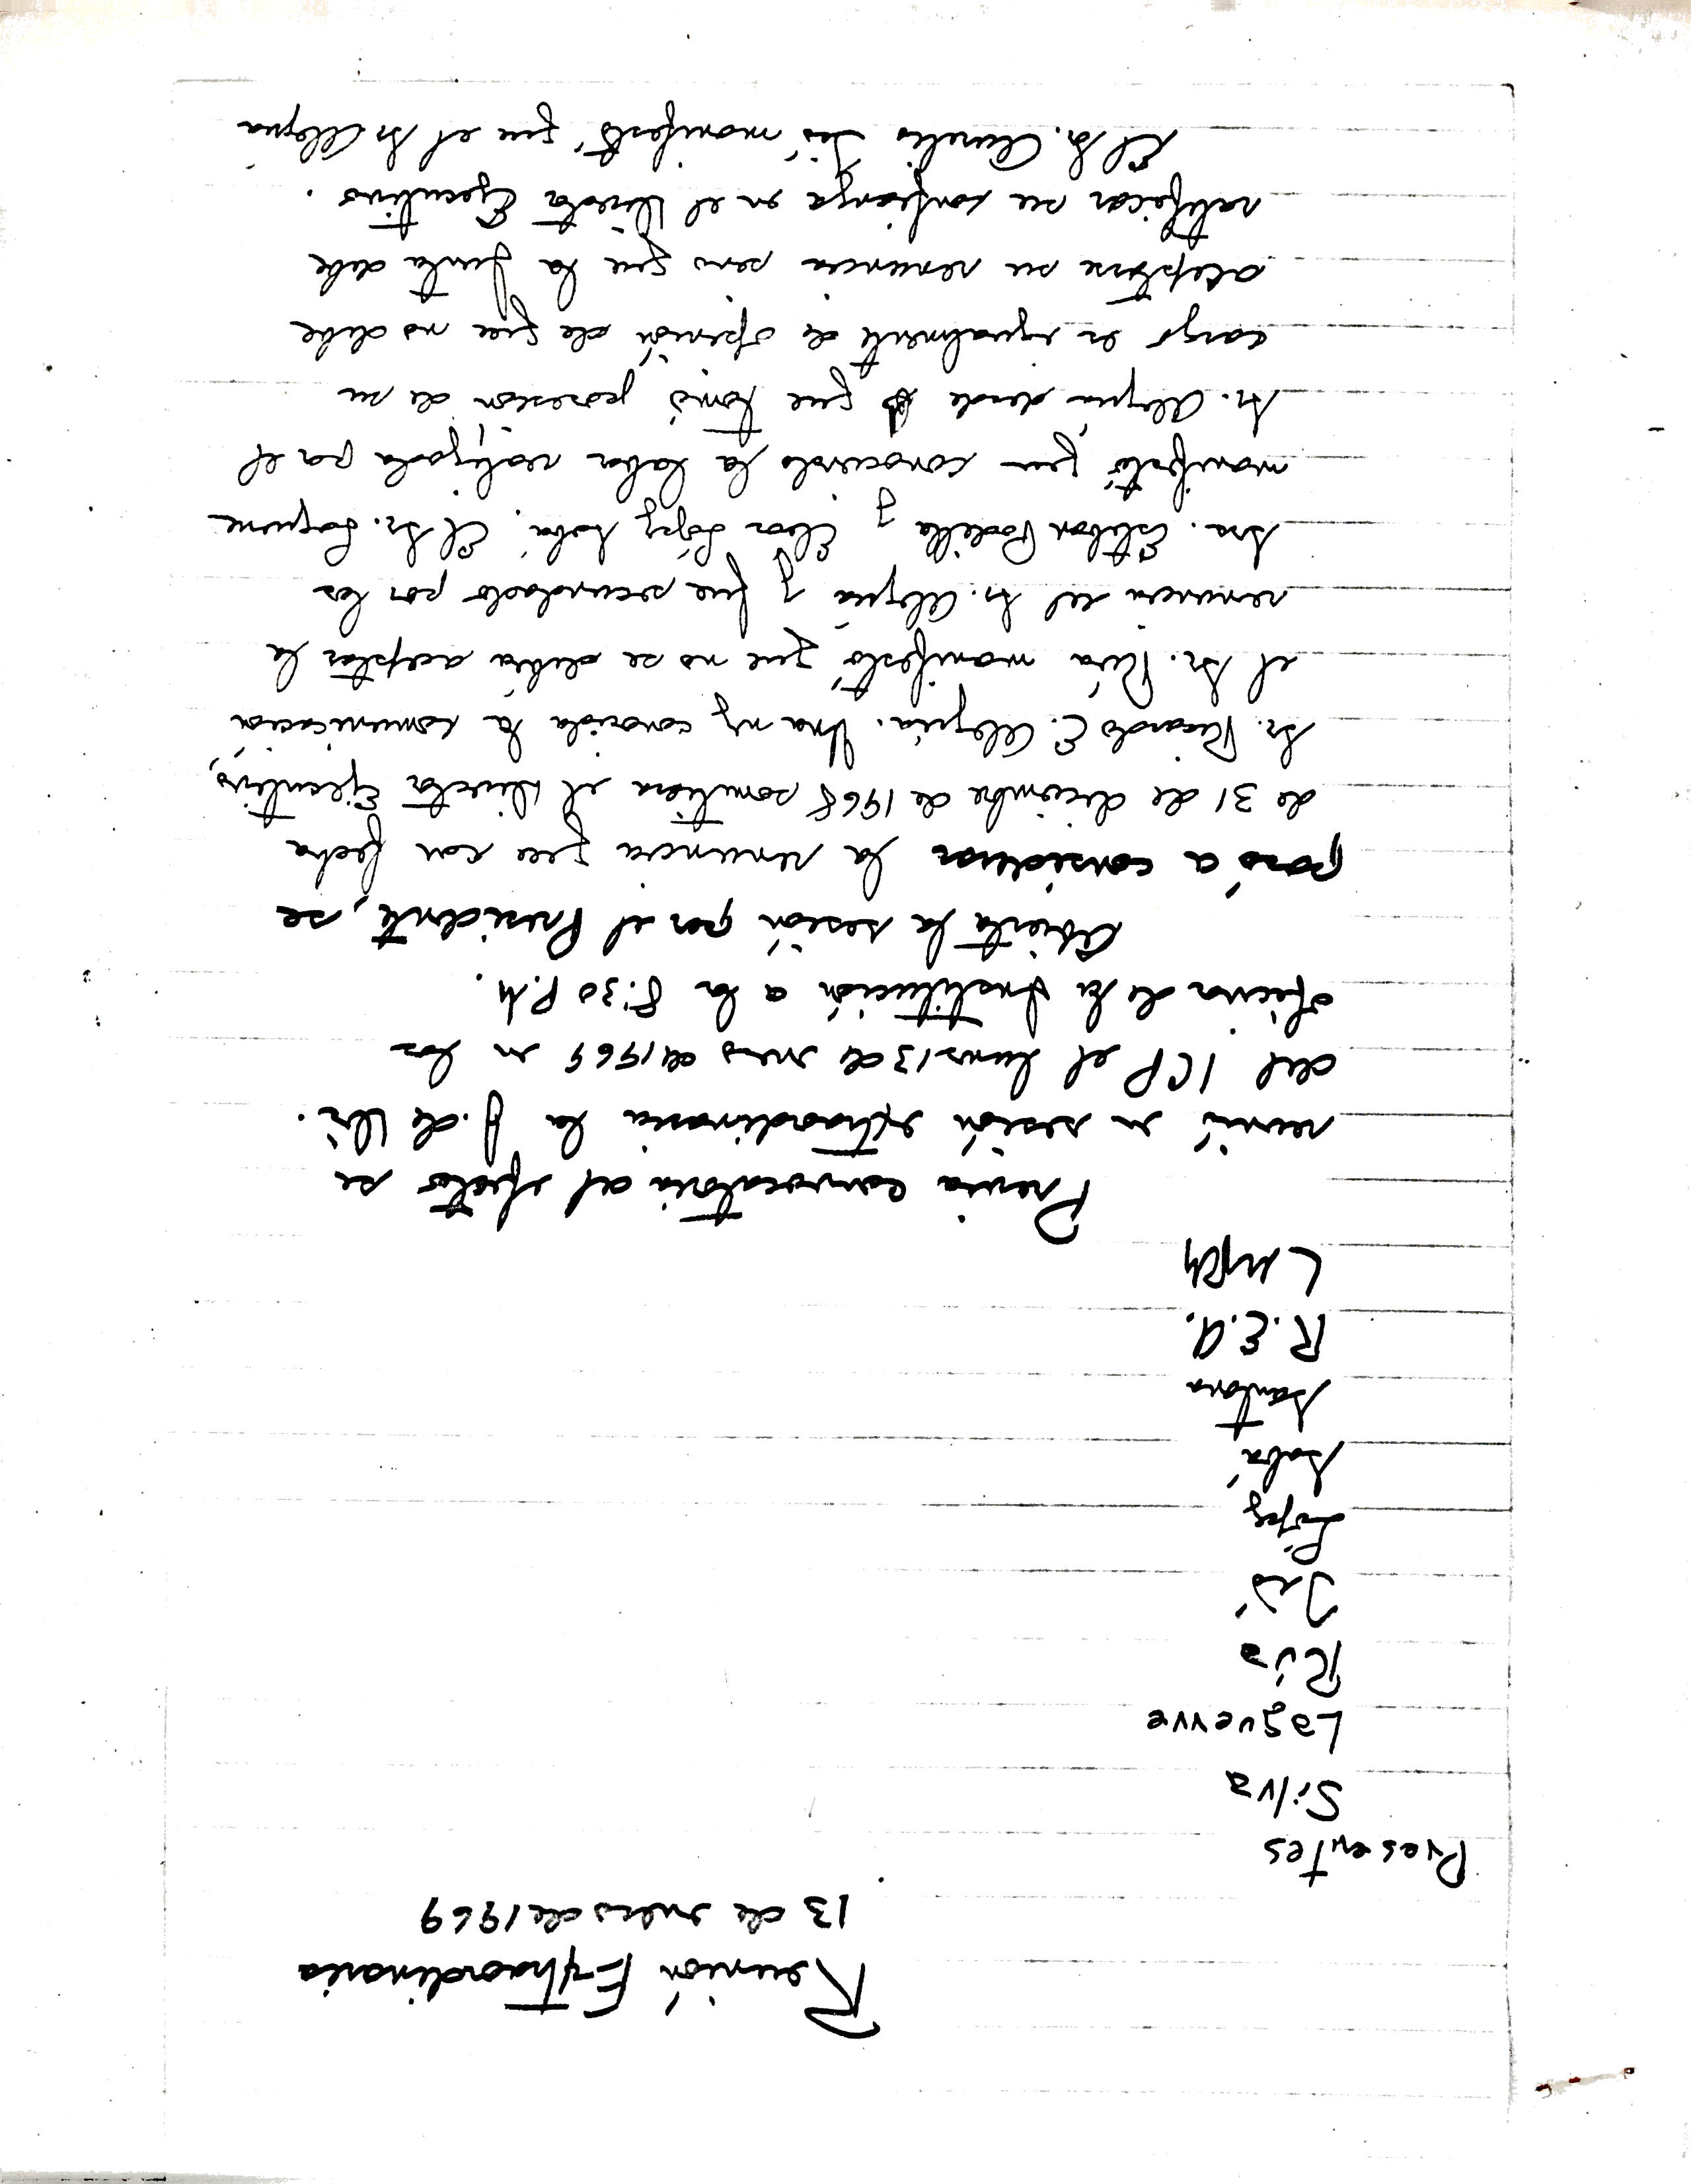 Reunión Extraordinaria
13 de enero de 1969
Presentes
Silva
Laguerre
Ríva
Tió
López
Sabá
Santana
R.E.A.
Previa convocatoria al efecto se
reunió en sesión extraordinaria la J. de Dir.
del ICP el lunes 13 de enero de 1969 en las
oficina de la Institución a las 8:30 P.M.
Abierta la sesión por el Presidente, se
pasó a considerar la renuncia que con fecha
de 31 de diciembre de 1968 sometiera el Director Ejecutivo,
Sr. Ricardo E. Alegría. Una vez conocida la comunicación
el Sr. Ríva manifestó que no se debía aceptar la
renuncia del Sr. Alegría y fue secundado por los
Srs. Esteban Padilla y Elvor López Sabá. El Sr. Laguerre
manifestó que conociendo la labor realizada por el
Sr. Alegría desde que tomó posesión de su
cargo es igualmente de opinión de que no debe
aceptarse su renuncia pero que la Junta debe
ratificar su confianza en el Director Ejecutivo.
El Sr. Aurelio Tió manifestó que el Sr Alegría